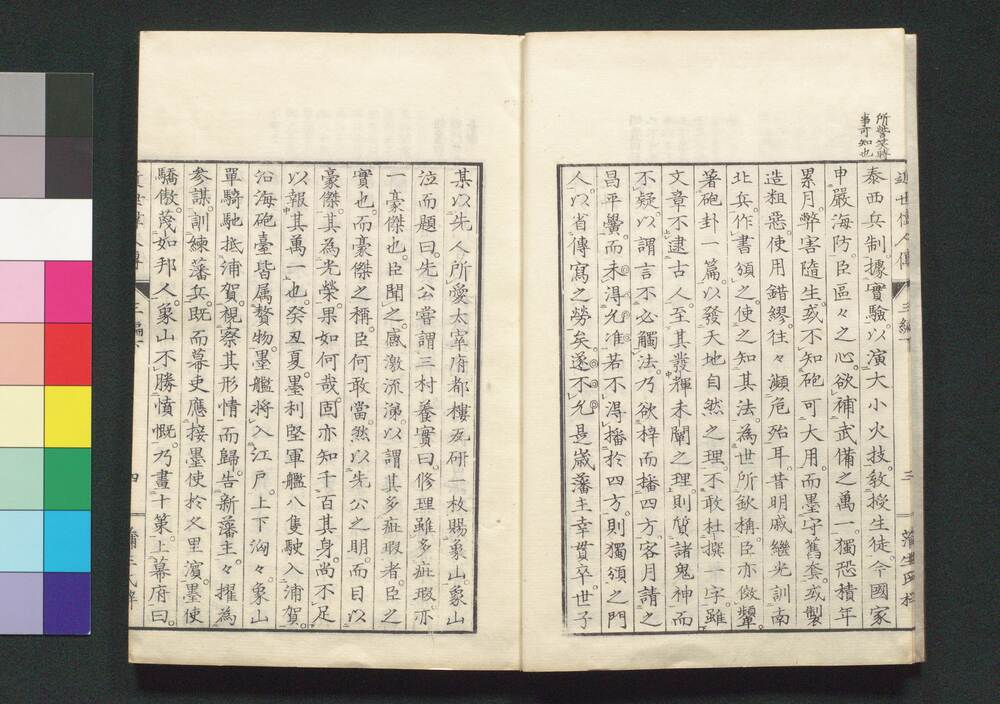 所誉
事可知也
近世偉人傳
三編
三
蒲生氏梓
泰西兵制據實驗以演大小火技教授生徒今國家
申嚴海防臣區々之心欲補武備之萬一獨恐積年
累月弊害隨生或不知砲可大用而墨守舊套或製
造粗惡使用錯繆往々瀕危殆耳昔明戚繼光訓南
北兵作書頒之使之知其法為世所欽稱臣亦傚顰
著砲卦一篇以發天地自然之理不敢杜撰一字雖
文章不逮古人至其發輝未闡之理則質諸鬼神而
不疑以謂言不必觸法乃欲梓而播四方客月請之
昌平黌而未得允准若不得播於四方則獨頒之門
人以省傳寫之勞矣遂不允是歲藩主幸貫卒世子
某以先人所愛太宰府都樓瓦研一枚賜象山象山
泣而題曰先公嘗謂三村養實曰修理雖多疵瑕亦
一豪傑也臣聞之感激流涕以謂其多疵瑕者臣之
實也而豪傑之稱臣何敢當然以先公之明而目以
豪傑其為光榮果如何哉固亦知千百其身尚不足
以報其萬一也癸丑夏墨利堅軍艦八隻駛入浦賀
沿海砲臺皆属贅物墨艦將入江戸上下洶々象山
單騎馳抵浦賀視察其形情而歸告新藩主々擢為
參謀訓練藩兵既而幕吏應接墨使於久里濱墨使
驕傲蔑如邦人象山不勝憤慨乃畫十策上幕府曰
三編
四